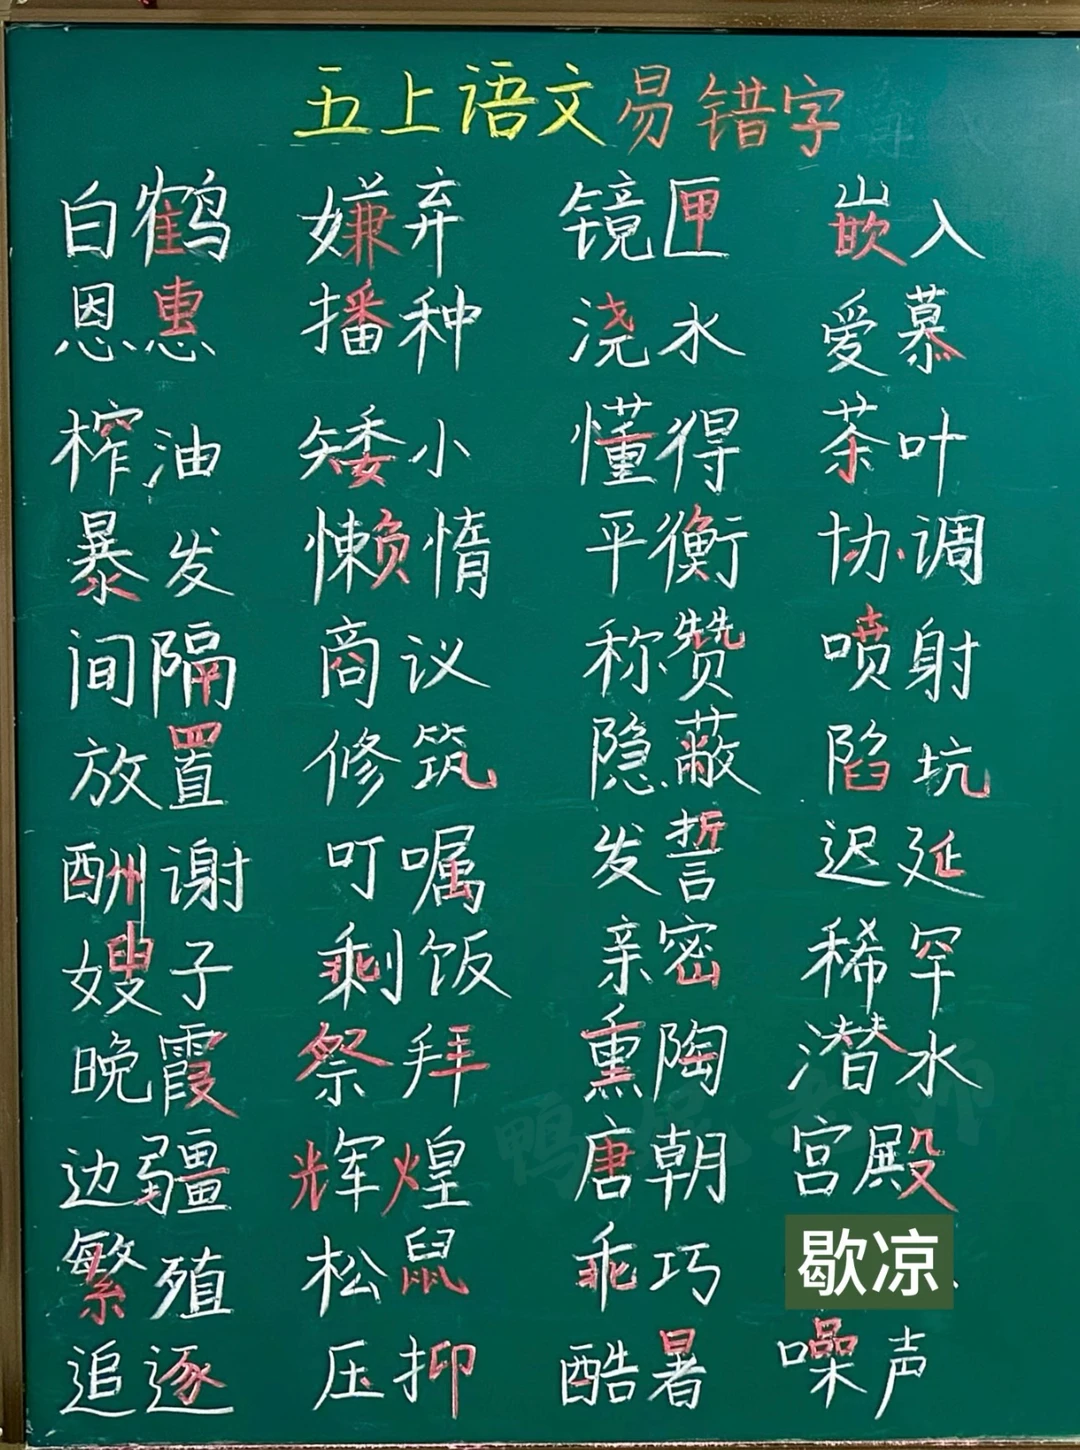 五上语文易错字
白鹤 嫌弃 镜匣 嵌入
恩惠 播种 浇水 爱慕
榨油 矮小 懂得 茶叶
暴发 懒惰 平衡 协调
间隔 商议 称赞 喷射
放置 修筑 隐蔽 陷坑
酬谢 叮嘱 发誓 迟延
嫂子 剩饭 亲密 稀罕
晚霞 祭拜 熏陶 潜水
边疆 辉煌 唐朝 宫殿
繁殖 松鼠 乖巧 歇凉
追逐 压抑 酷暑 噪声